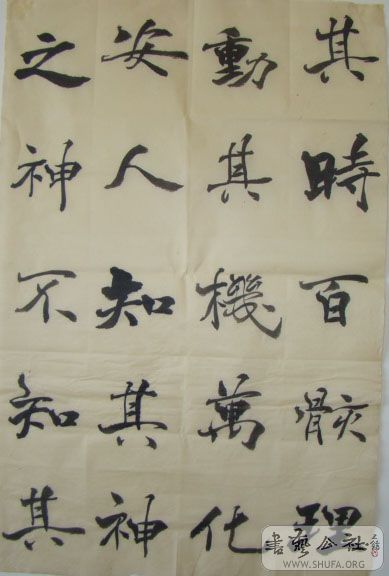 其時百骸理
動其機萬化
安人知其神
之神不知其
書藝公社
WWW.SHUFA.ORG